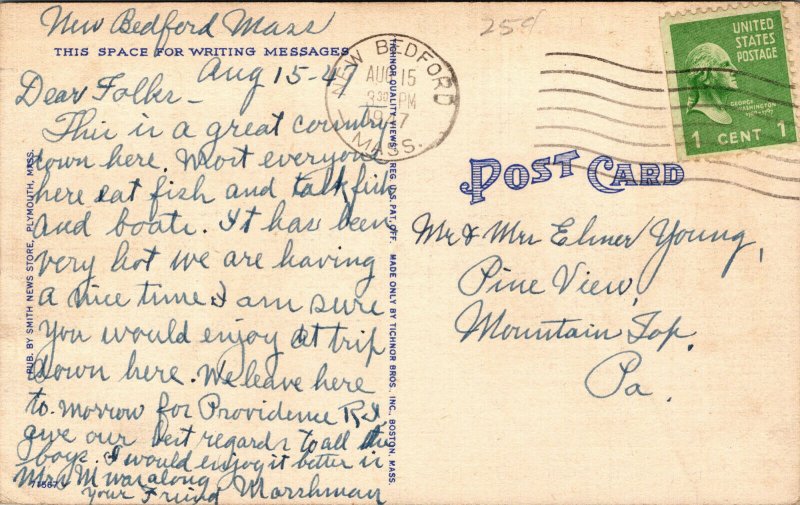 New Bedford Mass
THIS SPACE FOR WRITING MESSAGES
Aug 15-47
Dear Folks-
This is a great country
down here. Most everyone
here eat fish and talk fish
and boats. It has been
very hot we are having
a nice time. I am sure
you would enjoy at trip
down here. We leave here
to. morrow for Providence R.I
give our best regards to all the
boys. I would enjoy it better if
Mrs M was along
your Friend Marshman
PUB. BY SMITH NEWS STORE, PLYMOUTH, MASS.
TICHNOR QUALITY VIEWS REG. U.S. PAT. OFF. MADE ONLY BY TICHNOR BROS. INC. BOSTON, MASS.
25¢
NEW BEDFORD
AUG 15
3 30 PM
1947
MASS.
UNITED
STATES
POSTAGE
GEORGE
WASHINGTON
1 CENT 1
POST CARD
Mr & Mrs Elmer Young,
Pine View,
Mountain Top.
Pa.